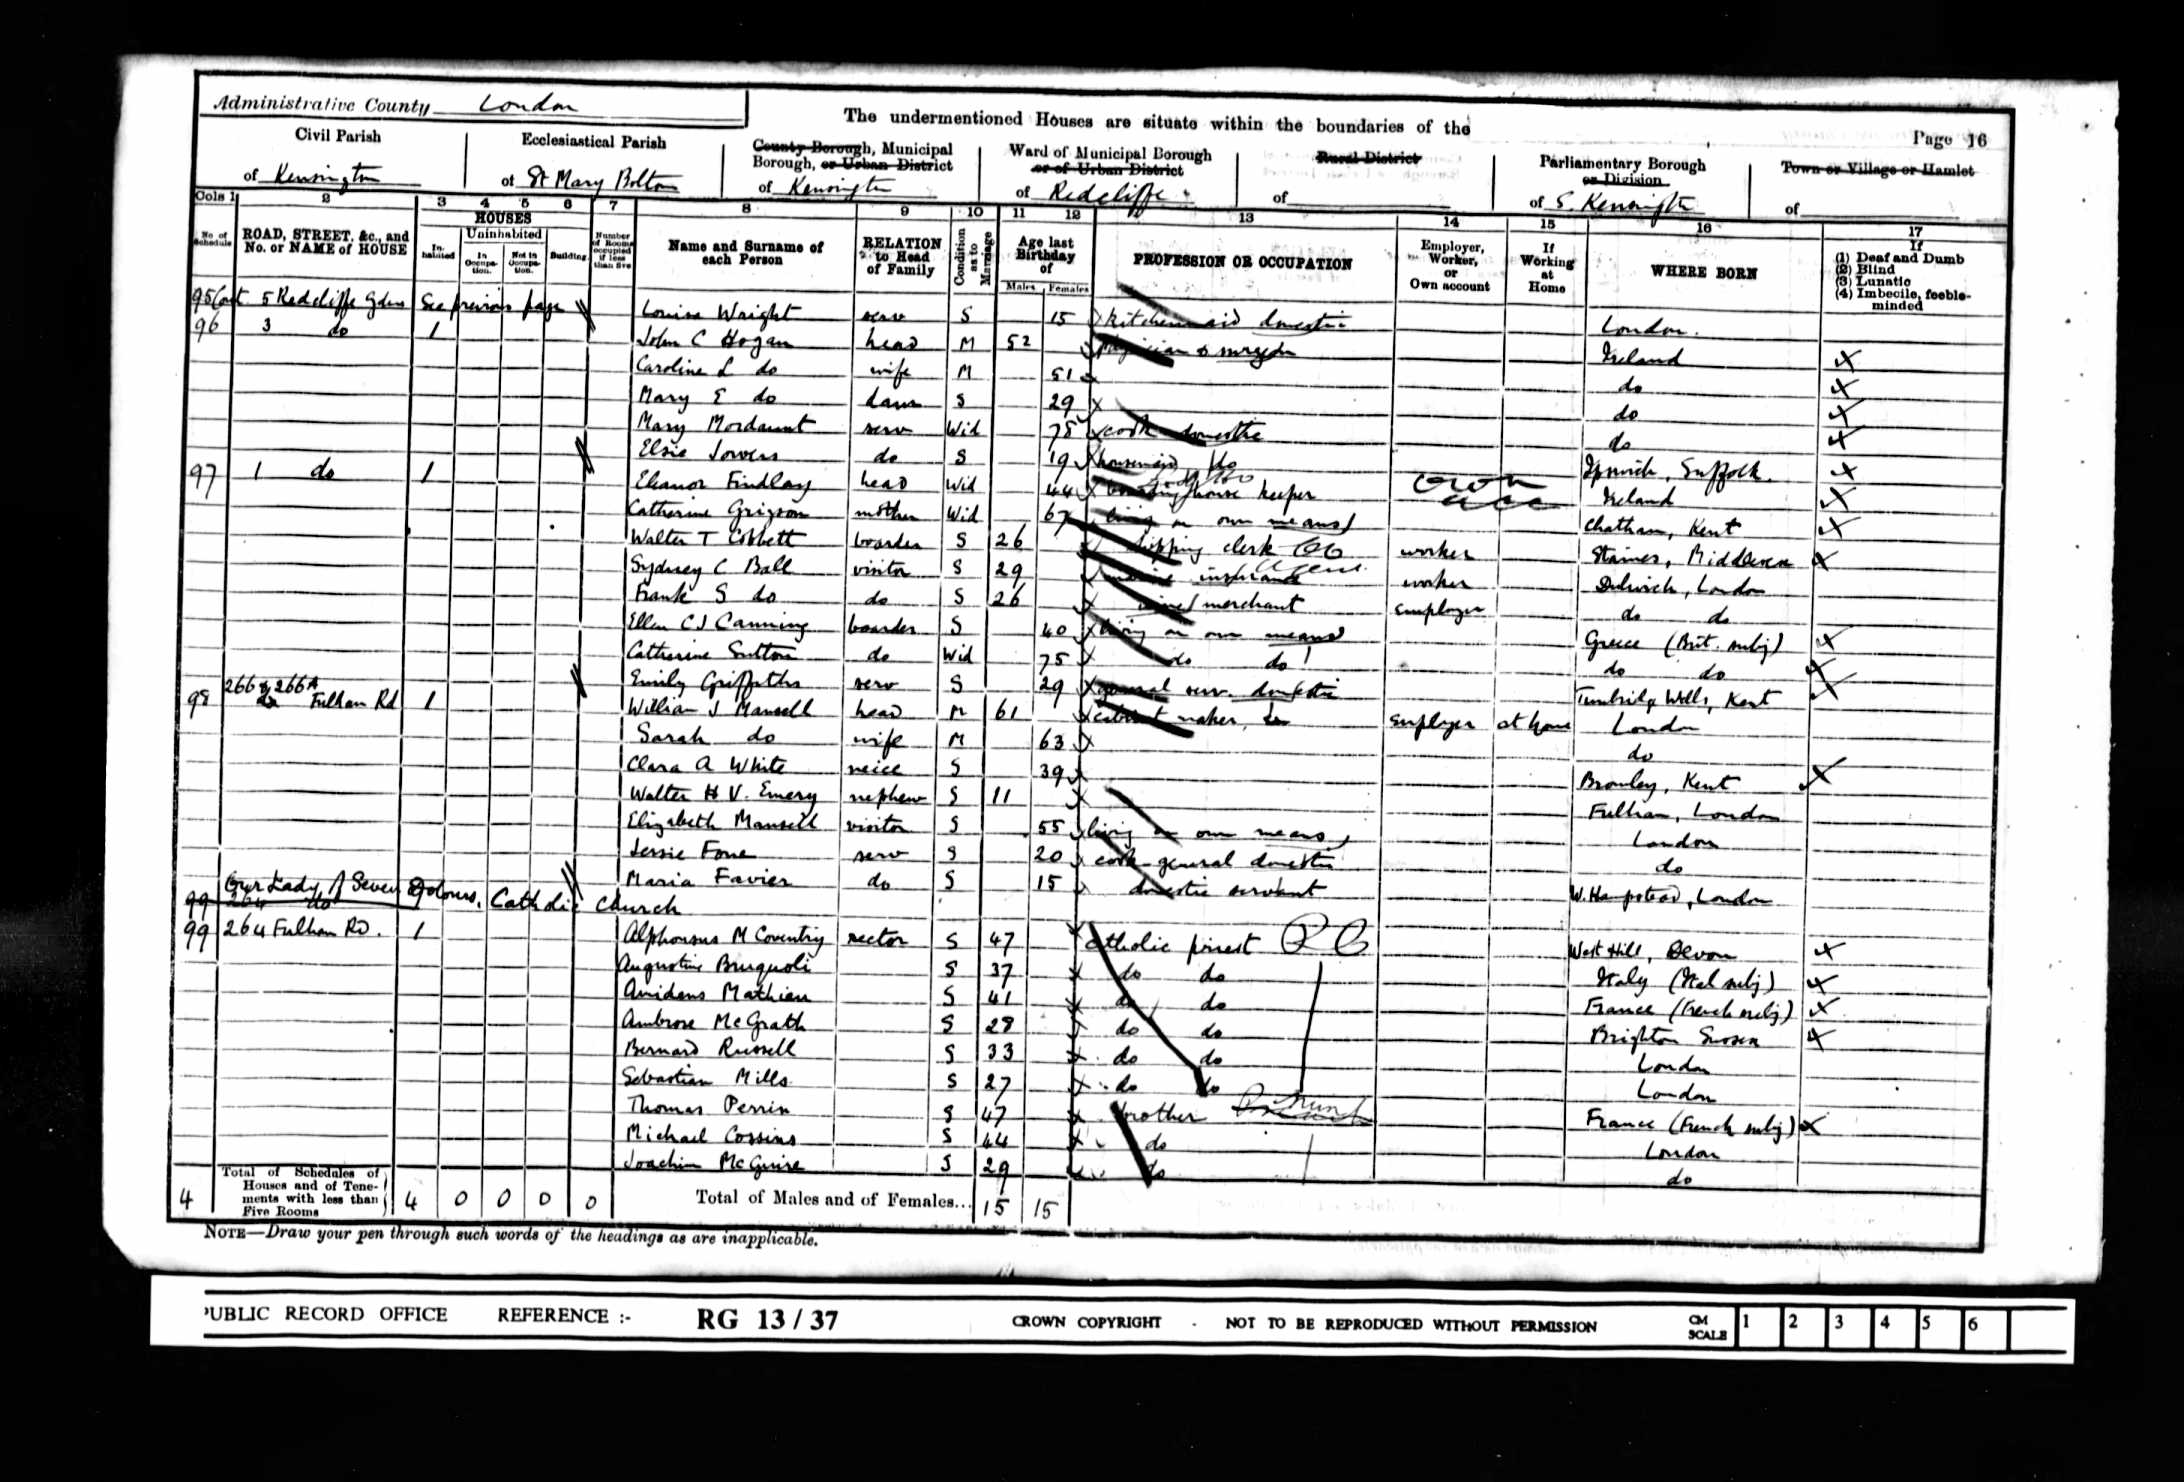 Administrative County London
The undermentioned Houses are situate within the boundaries of the
Page 16
Civil Parish
of Kensington
Ecclesiastical Parish
of St Mary Boltons
County Borough, Municipal Borough, or Urban District
of Kensington
Ward of Municipal Borough or of Urban District
of Redcliffe
Rural District
of
Parliamentary Borough or Division
of S. Kensington
Town or Village or Hamlet
of
Cols 1 2 3 4 5 6 7 8 9 10 11 12 13 14 15 16 17
No. of Schedule
ROAD, STREET, &c., and No. or NAME of HOUSE
HOUSES
Inhabited
Uninhabited
In Occupation.
Not in Occupation.
Building
Number of Rooms occupied if less than five
Name and Surname of each Person
RELATION to Head of Family
Condition as to Marriage
Age last Birthday of
Males Females
PROFESSION OR OCCUPATION
Employer, Worker, or Own account
If Working at Home
WHERE BORN
If
(1) Deaf and Dumb
(2) Blind
(3) Lunatic
(4) Imbecile, feeble-minded
95 Cont 5 Redcliffe Gdns See previous page Louisa Wright serv S 15 kitchenmaid domestic London.
96 3 do 1 John C Hogan head M 52 physician & surgeon Ireland
Caroline L do wife M 51 do
Mary E do daur S 29 do
Mary Mordaunt serv Wid 78 cook domestic do
Elsie Jowers do S 19 housemaid do Ipswich, Suffolk.
97 1 do 1 Eleanor Findlay head Wid 44 boarding house keeper own acc Ireland
Catherine Grigson mother Wid 67 living on own means Chatham, Kent
Walter T Cobbett boarder S 26 shipping clerk worker Staines, Middlesex
Sydney C Ball visitor S 29 marine insurance agent worker Dulwich, London
Frank S do do S 26 merchant employer do do
Ellen CJ Canning boarder S 40 living on own means Greece (Brit. subj)
Catherine Sutton do Wid 75 do do do do
Emily Griffiths serv S 29 general serv. domestic Tunbridge Wells, Kent
98 266 & 266A Fulham Rd 1 William J Mansell head M 61 cabinet maker employer at home London
Sarah do wife M 63 do
Clara A White neice S 39 Bromley, Kent
Walter H V. Emery nephew S 11 Fulham, London
Elizabeth Mansell visitor S 55 living on own means London
Jessie Fone serv S 20 cook-general domestic do
Maria Favier do S 15 domestic servant W. Hampstead, London
Our Lady of Seven Dolours, Catholic Church
99 264 do
99 264 Fulham Rd. 1 Alphonsus M Coventry rector S 47 Catholic priest RC West Hill, Devon
Augustine Bruguoli S 37 do do Italy (Ital subj)
Mathieu S 41 do do France (French subj)
Ambrose McGrath S 28 do do Brighton Sussex
Bernard Russell S 33 do do London
Sebastian Mills S 27 do do London
Thomas Perrin S 47 brother France (French subj)
Michael Cossins S 44 do London
Joachim McGuire S 29 do do
4 Total of Schedules of Houses and of Tenements with less than Five Rooms 4 0 0 0 0 Total of Males and of Females... 15 15
NOTE—Draw your pen through such words of the headings as are inapplicable.
PUBLIC RECORD OFFICE REFERENCE :- RG 13 / 37 CROWN COPYRIGHT - NOT TO BE REPRODUCED WITHOUT PERMISSION CM SCALE 1 2 3 4 5 6